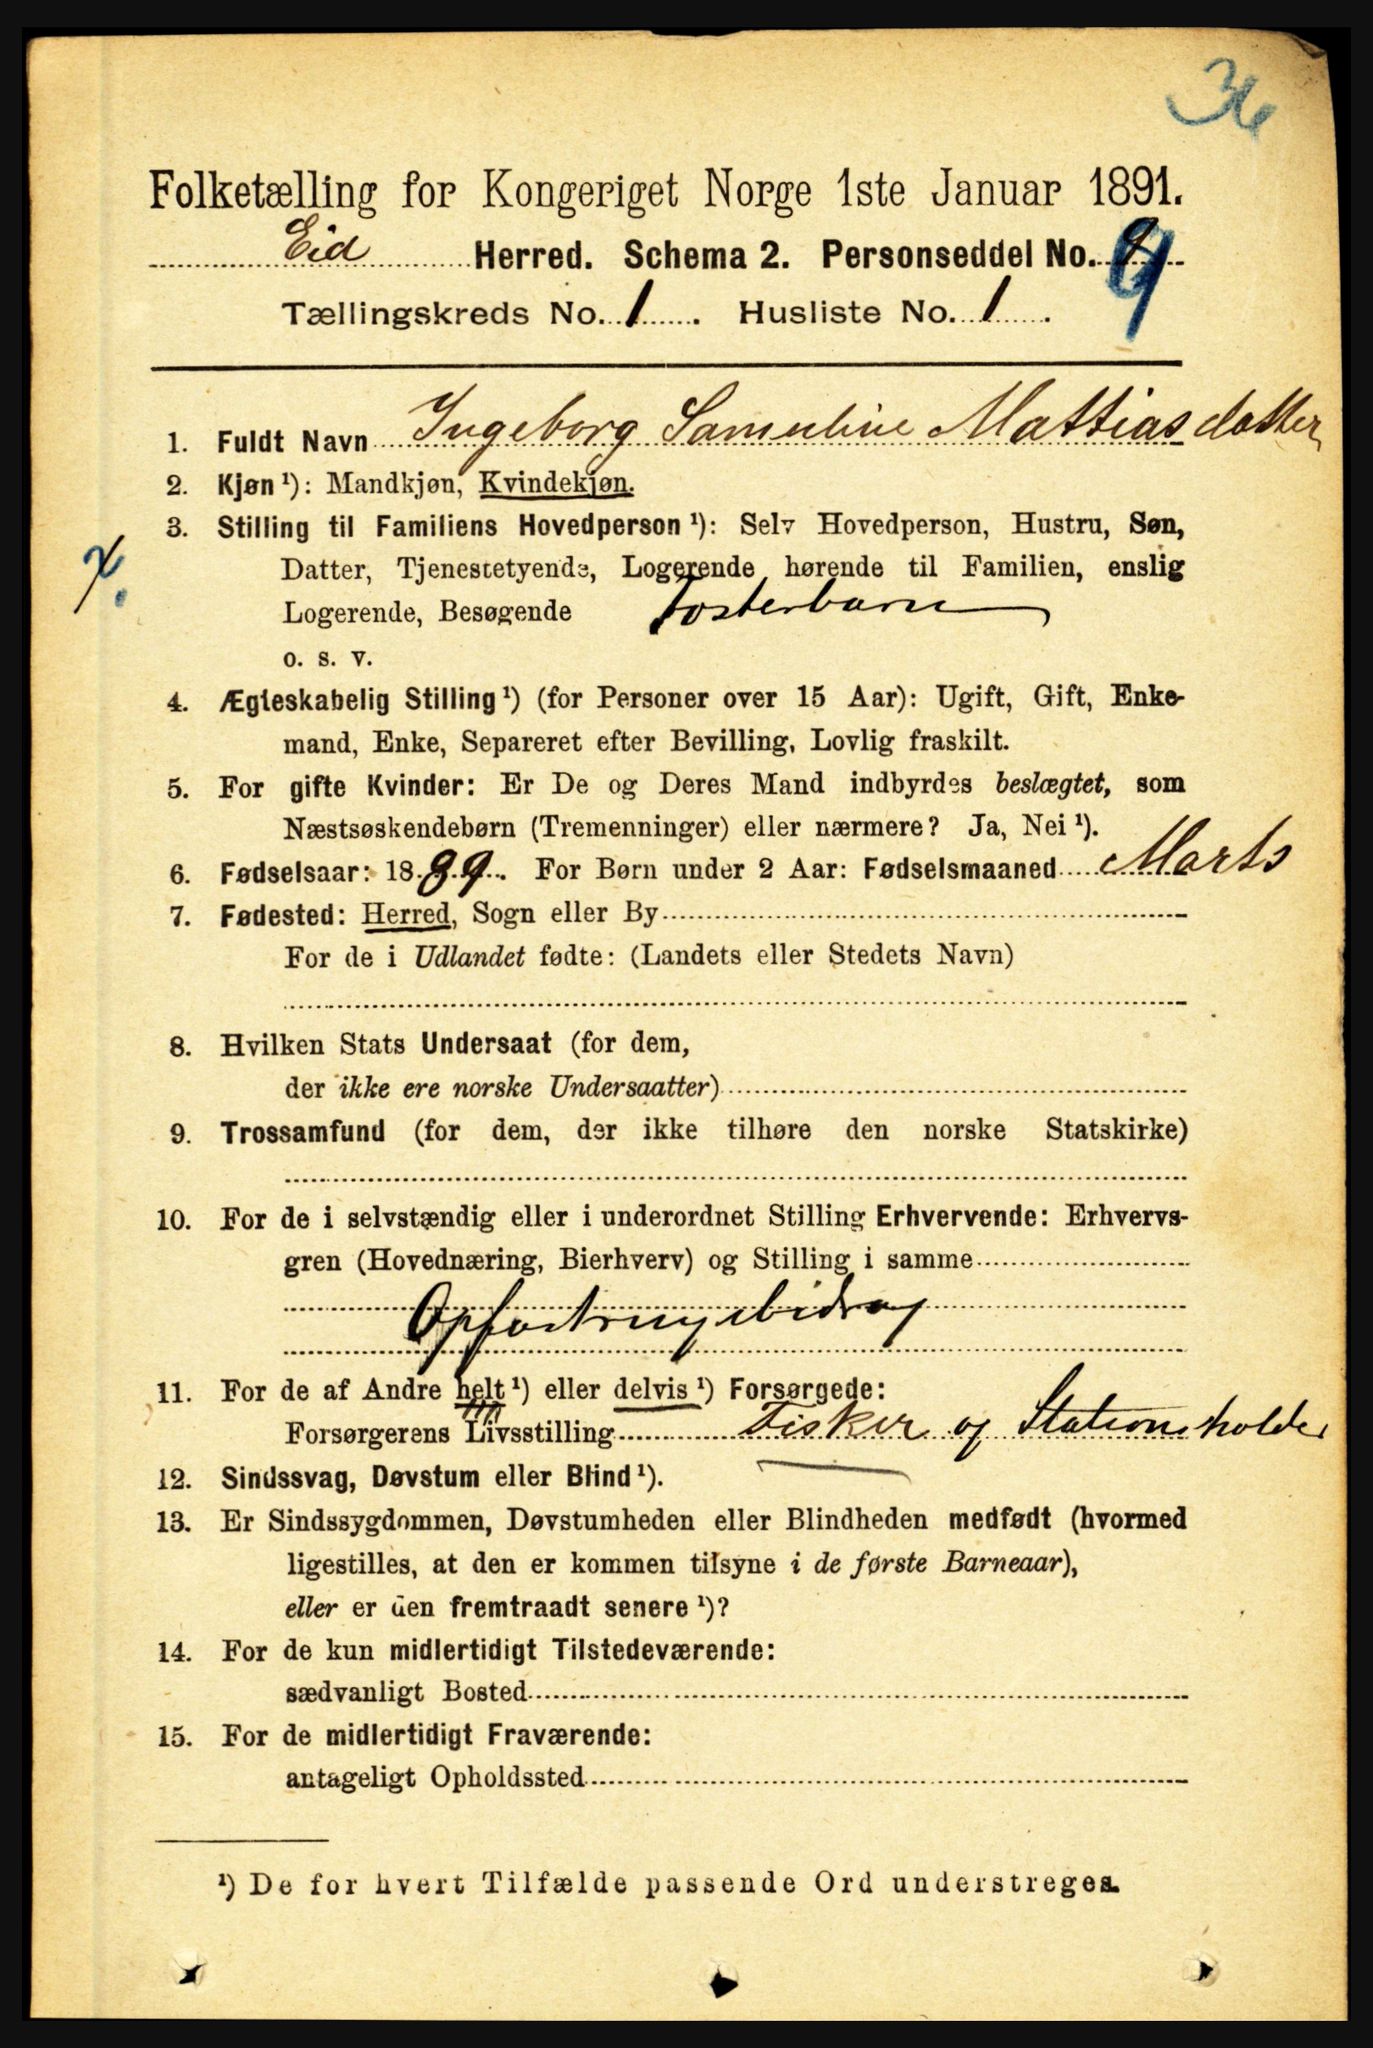 36
Folketælling for Kongeriget Norge 1ste Januar 1891.
Eid Herred. Schema 2. Personseddel No. 9
Tællingskreds No. 1. Husliste No. 1.
1. Fuldt Navn Ingeborg Samueline Mattiasdatter
2. Kjøn ¹): Mandkjøn, Kvindekjøn.
3. Stilling til Familiens Hovedperson ¹): Selv Hovedperson, Hustru, Søn,
Datter, Tjenestetyende, Logerende hørende til Familien, enslig
Logerende, Besøgende Fosterbarn
o. s. v.
4. Ægteskabelig Stilling ¹) (for Personer over 15 Aar): Ugift, Gift, Enke-
mand, Enke, Separeret efter Bevilling, Lovlig fraskilt.
5. For gifte Kvinder: Er De og Deres Mand indbyrdes beslægtet, som
Næstsøskendebørn (Tremenninger) eller nærmere? Ja, Nei ¹).
6. Fødselsaar: 1889. For Børn under 2 Aar: Fødselsmaaned Marts
7. Fødested: Herred, Sogn eller By
For de i Udlandet fødte: (Landets eller Stedets Navn)
8. Hvilken Stats Undersaat (for dem,
der ikke ere norske Undersaatter)
9. Trossamfund (for dem, der ikke tilhøre den norske Statskirke)
10. For de i selvstændig eller i underordnet Stilling Erhvervende: Erhvervs-
gren (Hovednæring, Bierhverv) og Stilling i samme
Opfostringsbidrag
11. For de af Andre helt ¹) eller delvis ¹) Forsørgede:
Forsørgerens Livsstilling Fisker og Stationsholder
12. Sindssvag, Døvstum eller Blind ¹).
13. Er Sindssygdommen, Døvstumheden eller Blindheden medfødt (hvormed
ligestilles, at den er kommen tilsyne i de første Barneaar),
eller er den fremtraadt senere ¹)?
14. For de kun midlertidigt Tilstedeværende:
sædvanligt Bosted
15. For de midlertidigt Fraværende:
antageligt Opholdssted
¹) De for hvert Tilfælde passende Ord understreges.